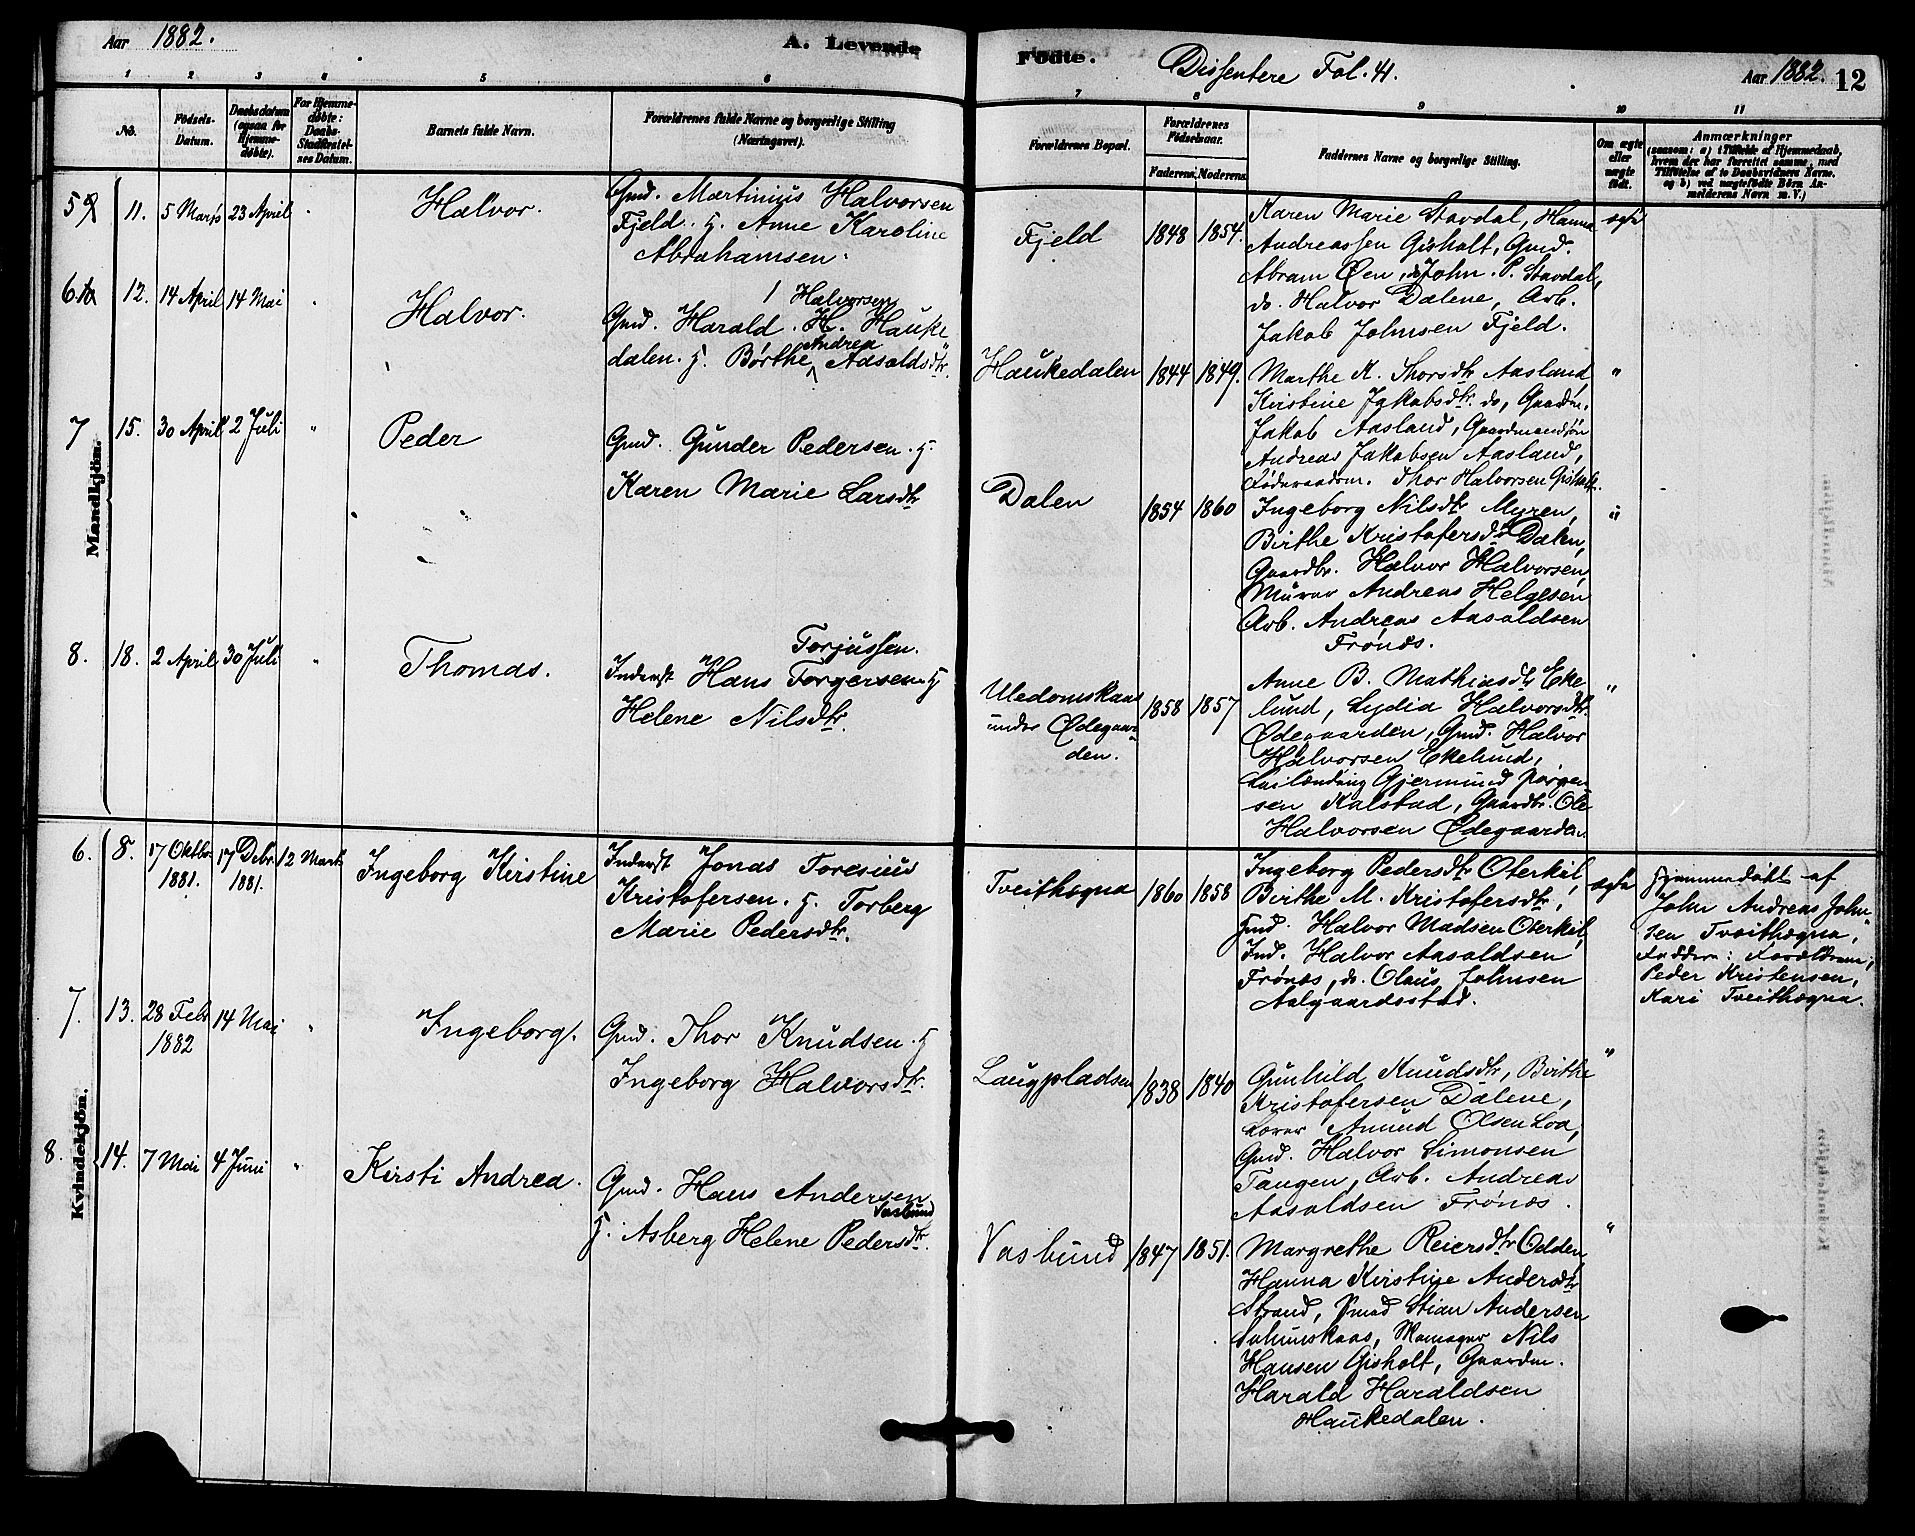 Aar 1882.
A. Levende
Fødte.
Dissentere Fol. 41.
Aar 1882.
12
1 2 3 4 5 6 7 8 9 10 11
No.
Fødsels-Datum.
Daabsdatum (ogsaa for Hjemmedøbte).
For Hjemmedøbte: Daabs-Stadfæstelses Datum.
Barnets fulde Navn.
Forældrenes fulde Navne og borgerlige Stilling (Næringsvei).
Forældrenes Bopæl.
Forældrenes Fødselsaar.
Faderens. Moderens.
Faddernes Navne og borgerlige Stilling.
Om ægte eller uægte født.
Anmærkninger
(saasom: a) i Tilfælde af Hjemmedaab, hvem der har forrettet samme, med Tilføielse af to Daabsvidners Navne. og b) ved uægtefødte Børn Anmelderens Navn m. V.)
Mandkjön.
5 11. 5 Marts 23 April
Halvor.
Gmd. Martinius Halvorsen
Fjeld. H. Anne Karoline
Abrahamsen.
Fjeld 1848 1854.
Karen Marie Stavdal, Hanna
Andreassen Gisholt, Gmd.
Abram Øen, do John. P. Stavdal,
do. Halvor Dalene, Arb.
Jakob Johnsen Fjeld.
ægte
6 12. 14 April 14 Mai
Halvor.
Halvorsen
Gmd. Harald. H. Hauke
dalen. H. Børthe Andrea Aasoldsdtr.
Haukedalen 1844 1849.
Marthe K. Thorsdtr Aasland
Kirstine Jakobsdtr. do, Gaardm.
Jakob Aasland, Gaardmandsøn
Andreas Jakobsen Aasland,
Føderaadsm. Thor Halvorsen Gisholt.
"
7 15. 30 April 2 Juli "
Peder
Gmd. Gunder Pedersen. H.
Karen Marie Larsdtr
Dalen 1854 1860
Ingeborg Nilsdtr Myren,
Birthe Kristofersdtr Dalen,
Gaardbr. Halvor Halvorsen,
Murer Andreas Helgesen
Arb. Andreas Aasoldsen
Frønæs.
"
8. 18. 2 April 30 Juli "
Thomas.
Torjussen.
Inderst Hans Torgersen H
Helene Nilsdtr.
Uledomskaas
under Ødegaar-
den.
1858 1857
Anne B. Mathiasdtr Eke
lund, Lydia Halvorsdtr.
Ødegaarden, Gmd. Halvor
Halvorsen Ekelund,
Gjermund Jørgen
sen Kalstad, Gaardbr. Ole
Halvorsen Ødegaarden
"
Kvindekjön.
6. 8. 17 Oktbr 1881. 17 Debr. 1881. 12 Marts
Ingeborg Kirstine
Inderst Jonas Toresius
Kristofersen. H. Torberg
Marie Pedersdtr.
Tveithogna 1860 1858
Ingeborg Pedersdtr Oterkil,
Birthe M. Kristofersdtr,
Gmd. Halvor Madsen Oterkil,
Ind. Halvor Aasoldsen
Frønæs, do. Olaus Johnsen
Aalgaardsstad.
ægte
Hjemmedøbt af
John Andreas John
sen Tveithogna,
Faddere: Forældrene,
Peder Kristensen,
Kari Tveithogna.
7. 13. 28 Febr 1882 14 Mai "
Ingeborg.
Gmd. Thor Knudsen. H
Ingeborg Halvorsdtr.
Laugpladsen 1838 1840
Gunhild Knudsdtr, Birthe
Kristofersen Dalene,
Lærer Amund Olsen Loa,
Gmd. Halvor Simonsen
Tangen, Arb. Andreas
Aasoldsen Frønæs.
"
8. 14. 7 Mai 4 Juni "
Kirsti Andrea.
Gmd. Hans Andersen
Vasbund
H. Asberg Helene Pedersdtr.
Vasbund 1847 1851.
Margrethe Reiersdtr Odden,
Hanna Kirstine Andersdtr
Strand, Gmd Stian Andersen
Nils
Hansen Gisholt, Gaardm.
Harald Haraldsen
Haukedalen.
"